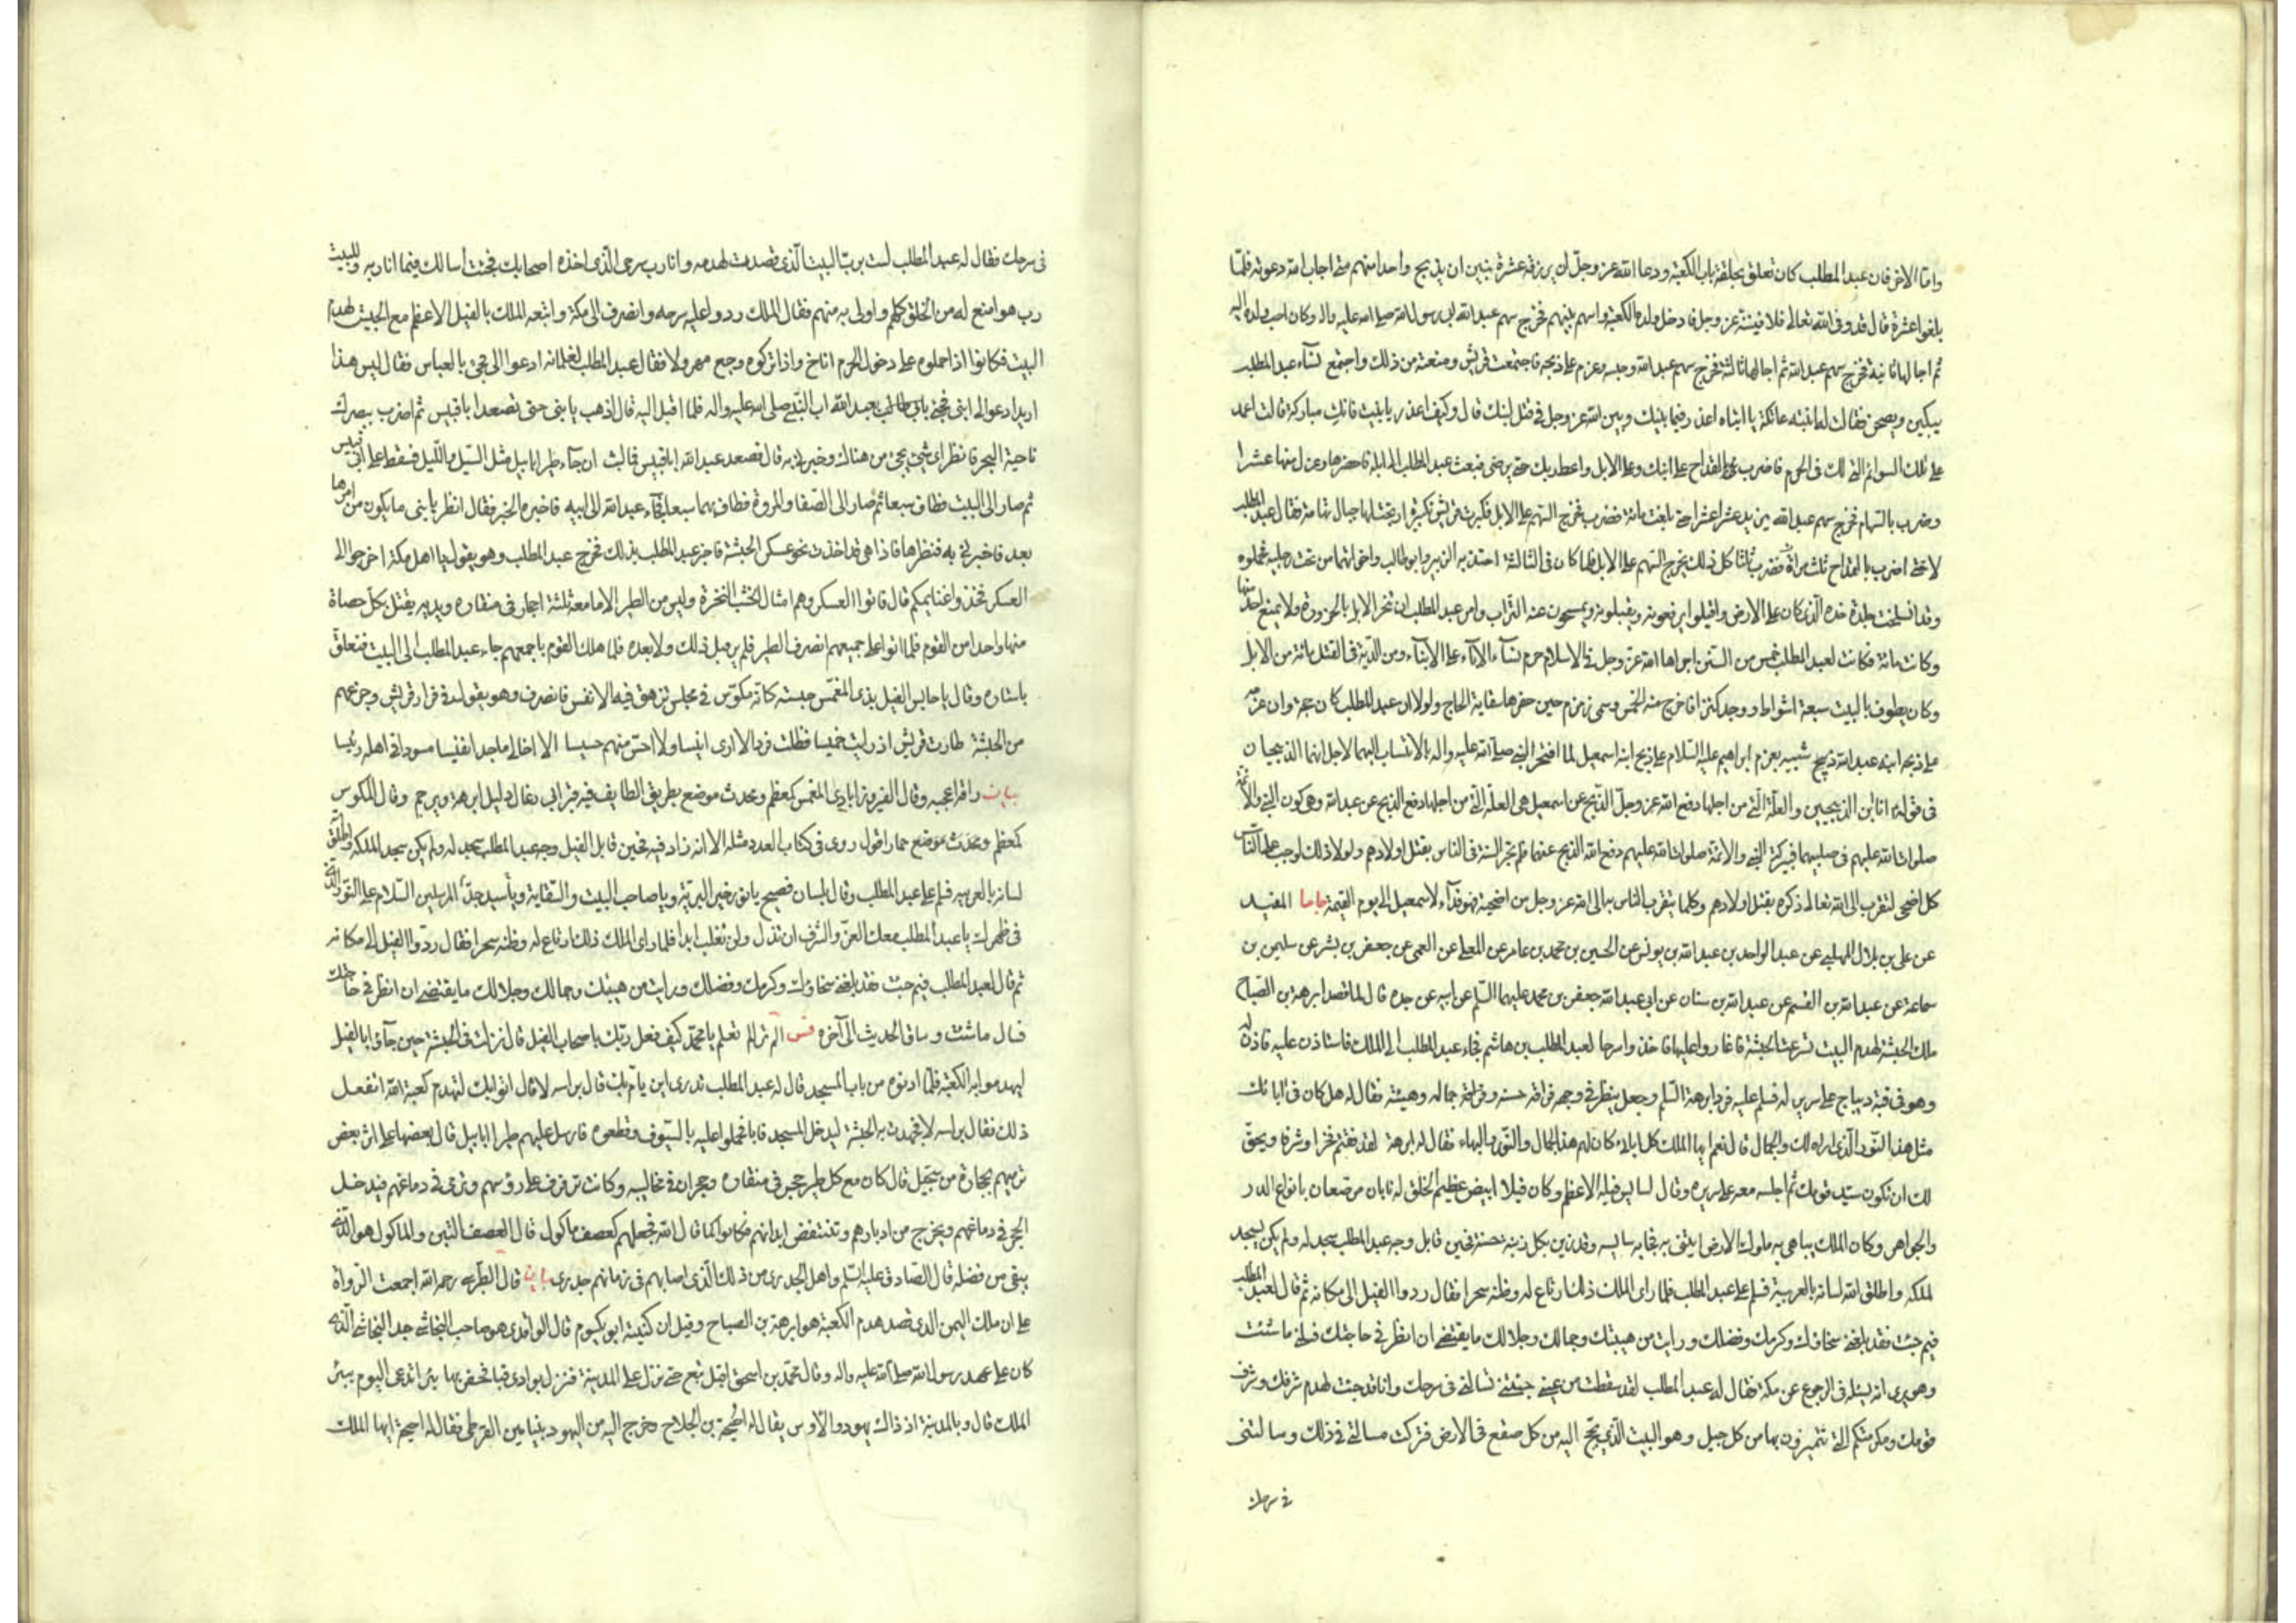 واما الاخر فان عبد المطلب كان تعلق بحلقة باب الكعبة ودعا الله عز وجل ان يرزقه عشرة بنين ان يذبح واحدا منهم متى اجاب الله دعوته فلما
بلغوا عشرة قال قد وفى الله تعالى فلافين لله عز وجل فادخل ولده الكعبة واسهم بينهم فخرج سهم عبد الله ابى رسول الله صلى الله عليه واله وكان احب ولده اليه
ثم اجالها ثانية فخرج سهم عبد الله ثم اجالها ثالثة فخرج سهم عبد الله وحبسه وعزم على ذبحه فاجتمعت قريش ومنعته من ذلك واجتمع نساء عبد المطلب
يبكين ويصحن فقالت له ابنته عاتكة يا ابتاه اعذر فيما بينك وبين الله عز وجل فى قتل ابنك قال وكيف اعذر يا بنيت فانك مباركة قالت اعمد
على تلك السوائم التى لك فى الحرم فاضرب بالقداح على ابنك وعلى الابل واعط ربك حتى يرضى فبعث عبد المطلب الى ابله فاحضرها وعزل منها عشرا
وضرب بالسهام فخرج سهم عبد الله يزيد عشرا عشرا حتى بلغت مائة فضرب فخرج السهم على الابل فكبرت قريش تكبيرة ارتجت لها جبال تهامة فقال عبد المطلب
لا حتى اضرب بالقداح ثلث مرات فضرب ثلثا كل ذلك يخرج السهم على الابل فلما كان فى الثالثة اجتذبه الزبير وابو طالب واخواتهما من تحت رجليه فحملوه
وقد انسلخت جلدة خده الذى كان على الارض واقبلوا يرفعونه ويقبلونه ويمسحون عنه التراب وامر عبد المطلب ان تنحر الابل بالحزورة ولا يمنع احد منها
وكانت مائة فكانت لعبد المطلب خمس من السنن اجراها الله عز وجل فى الاسلام حرم نساء الاباء على الابناء وسن الدية فى القتل مائة من الابل
وكان يطوف بالبيت سبعة اشواط ووجد كنزا فاخرج منه الخمس وسمى زمزم حين حفرها سقاية الحاج ولولا ان عبد المطلب كان حجة وان عزمه
على ذبحه ابنه عبد الله ذبيح شبيه بعزم ابراهيم عليه السلام على ذبح ابنه اسمعيل لما افتخر النبى صلى الله عليه واله بالانتساب اليهما لاجل انهما الذبيحان
فى قوله انا ابن الذبيحين والعلة التى من اجلها دفع الله عز وجل الذبح عن اسمعيل هى العلة التى من اجلها دفع الذبح عن عبد الله وهى كون النبى والائمة
صلوات الله عليهم فى صلبيهما فببركة النبى والائمة صلوات الله عليهم دفع الله الذبح عنهما فلم تجر السنة فى الناس بقتل اولادهم ولولا ذلك لوجب على الناس
كل اضحى لتقرب الى الله تعالى ذكره بقتل اولادهم وكلما يتقرب الناس به الى الله عز وجل من اضحية فهو فداء لاسمعيل الى يوم القيمة ما جا المفيد
عن على بن بلال المهلبى عن عبد الواحد بن عبد الله بن يونس عن الحسين بن محمد بن عامر عن المعلى عن العمى عن جعفر بن بشر عن سليمن بن
سماعة عن عبد الله بن القسم عن عبد الله بن سنان عن ابى عبد الله جعفر بن محمد عليهما السلم عن ابيه عن جده قال لما قصد ابرهة بن الصباح
ملك الحبشة لهدم البيت تسرعت الحبشة فاغاروا عليها فاخذوا سرحا لعبد المطلب بن هاشم فجاء عبد المطلب الى الملك فاستاذن عليه فاذن له
وهو فى قبة ديباج على سرير له فسلم عليه فرد ابرهة السلم وجعل ينظر فى وجهه فراقه حسنه وجماله وهيئته فقال له هل كان فى ابائك
مثل هذا النور الذى اراه لك والجمال قال نعم ايها الملك كل ابائى كان لهم هذا الجمال والنور والبهاء فقال له ابرهة لقد فقتم فخرا وشرفا ويحق
لك ان تكون سيد قومك ثم اجلسه معه على سريره وقال لسايس فيله الاعظم وكان فيلا ابيض عظيم الخلق له نابان مرصعان بانواع الدر
والجواهر وكان الملك يباهى به ملوك الارض ايتنى به فجاء به سايسه وقد زين بكل زينة حسنة فحين قابل وجه عبد المطلب سجد له ولم يكن يسجد
لملكه واطلق الله لسانه بالعربية فسلم على عبد المطلب فلما راى الملك ذلك ارتاع له وظنه سحرا فقال ردوا الفيل الى مكانه ثم قال لعبد المطلب
فيم جئت فقد بلغنى سخاؤك وكرمك وفضلك ورايت من هيبتك وجمالك وجلالك ما يقتضى ان انظر فى حاجتك فسلنى ما شئت
وهو يرى انه يسئله فى الرجوع عن مكة فقال له عبد المطلب لقد سقطت من عينى جئتنى تسالنى فى سرحك وانا قد جئت لهدم شرفك وشرف
قومك ومكرمتكم التى تتميزون بها من كل جيل وهو البيت الذى يحج اليه من كل صقع فى الارض فتركت مسالتى فى ذلك وسالتنى
فى سرحك
فى سرحك فقال له عبد المطلب لست برب البيت الذى قصدت لهدمه وانا رب سرحى الذى اخذه اصحابك فجئت اسالك فيما انا ربه وللبيت
رب هو امنع له من الخلق كلهم واولى به منهم فقال الملك ردوا عليه سرحه وانصرف الى مكة واتبعه الملك بالفيل الاعظم مع الجيش لهدم
البيت فكانوا اذا حملوه على دخول الحرم اناخ واذا تركوه رجع مهرولا فقال عبد المطلب لغلمانه ادعوا الى فجئ بالعباس فقال ليس هذا
اريد ادعوا لى ابنى فجئ بابى طالب بعبد الله اب النبى صلى الله عليه واله فلما اقبل اليه قال اذهب يا بنى حتى تصعد ابا قبيس ثم اضرب ببصرك
ناحية البحر فانظر اى شئ يجئ من هناك وخبرنى به قال فصعد عبد الله ابا قبيس فما لبث ان جاء طير ابابيل مثل السيل والليل فسقط على ابى قبيس
ثم صار الى البيت فطاف سبعا ثم صار الى الصفا والمروة فطاف بهما سبعا فجاء عبد الله الى ابيه فاخبره الخبر فقال انظر يا بنى ما يكون من امرها
بعد فاخبرنى به فنظرها فاذا هى قد اخذت نحو عسكر الحبشة فاخبر عبد المطلب بذلك فخرج عبد المطلب وهو يقول يا اهل مكة اخرجوا الى
العسكر فخذوا غنايمكم قال فاتوا العسكر وهم امثال الخشب النخرة وليس من الطير الا ما معه ثلثة احجار فى منقاره ويديه يقتل بكل حصاة
منها واحدا من القوم فلما اتوا على جميعهم انصرف الطير فلم ير قبل ذلك ولا بعده فلما هلك القوم باجمعهم جاء عبد المطلب الى البيت فتعلق
باستاره وقال يا حابس الفيل بذى المغمس حبسته كانه مكوس فى مجلس تزهق فيه الانفس فانصرف وهو يقول فى فرار قريش وجزعهم
من الحبشة طارت قريش اذ رات خميسا فظلت فردا لا ارى انيسا ولا احس منهم حسيسا الا اخا لى ماجدا نفيسا مسودا فى اهله رئيسا
بيان راقه اعجبه وقال الفيروزابادى المغمس كمعظم ومحدث موضع بطريق الطايف فيه قبر ابى رغال دليل ابرهة ويرجم وقال المكوس
كمعظم ومحدث موضع حمار اقول روى فى كتاب العدد مثله الا انه زاد فيه فحين قابل الفيل وجه عبد المطلب سجد له ولم يكن سجد لملكه واطلق الله
لسانه بالعربية فسلم على عبد المطلب وقال بلسان فصيح يا نور خير البرية ويا صاحب البيت والسقاية ويا سيد جد المرسلين السلام على النور الذى
فى ظهرك يا عبد المطلب معك العز والشرف لن تذل ولن تغلب ابدا فلما راى الملك ذلك ارتاع له وظنه سحرا فقال ردوا الفيل الى مكانه
ثم قال لعبد المطلب فيم جئت فقد بلغنى سخاؤك وكرمك وفضلك ورايت من هيبتك وجمالك وجلالك ما يقتضى ان انظر فى حاجتك
فسل ما شئت وساق الحديث الى آخره فس الم تر الم تعلم يا محمد كيف فعل ربك باصحاب الفيل قال نزلت فى الحبشة حين جاؤا بالفيل
ليهدموا به الكعبة فلما ادنوه من باب المسجد قال له عبد المطلب تدرى اين يام بك قال براسه لا قال اتوا بك لتهدم كعبة الله اتفعل
ذلك فقال براسه لا فجهدت به الحبشة ليدخل المسجد فابا فحملوا عليه بالسيوف وقطعوه فارسل عليهم طيرا ابابيل قال بعضها على اثر بعض
ترميهم بحجارة من سجيل قال كان مع كل طير حجر فى منقاره وحجران فى مخاليبه وكانت ترفرف على رؤسهم وترمى فى دماغهم فيدخل
الحجر فى دماغهم ويخرج من ادبارهم وتنتفض ابدانهم فكانوا كما قال الله فجعلهم كعصف ماكول قال العصف التبن والماكول هو الذى
يبقى من فضله قال الصادق عليه السلم واهل الجدرى من ذلك الذى اصابهم فى زمانهم جدرى بيان قال الطبرسى رحمه الله اجمعت الرواة
على ان ملك اليمن الذى قصد هدم الكعبة هو ابرهة بن الصباح وقيل ان كنيته ابو يكسوم قال الواقدى هو صاحب النجاشى جد النجاشى الذى
كان على عهد رسول الله صلى الله عليه واله وقال محمد بن اسحق اقبل تبع حتى نزل على المدينة فنزل بوادى قبا فحفر بها بئرا تدعى اليوم ببئر
الملك قال وبالمدينة اذ ذاك يهود والاوس يقال له احيحة بن الجلاح فخرج اليه من اليهود بنيامين القرظى فقال له احيحة ايها الملك